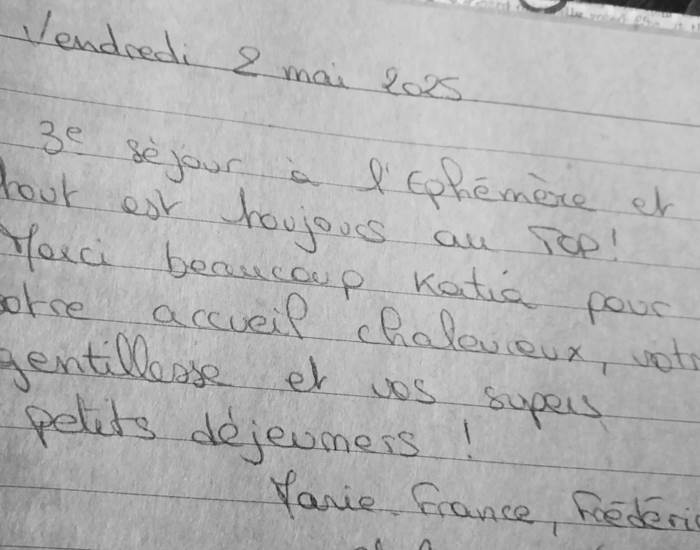 Vendredi 2 mai 2025
3e séjour à l'Ephémère et
tout est toujours au TOP!
Merci beaucoup Katia pour
otre accueil chaleureux, votr
gentillesse et vos supers
petits déjeuners !
Marie-France, Frédéric